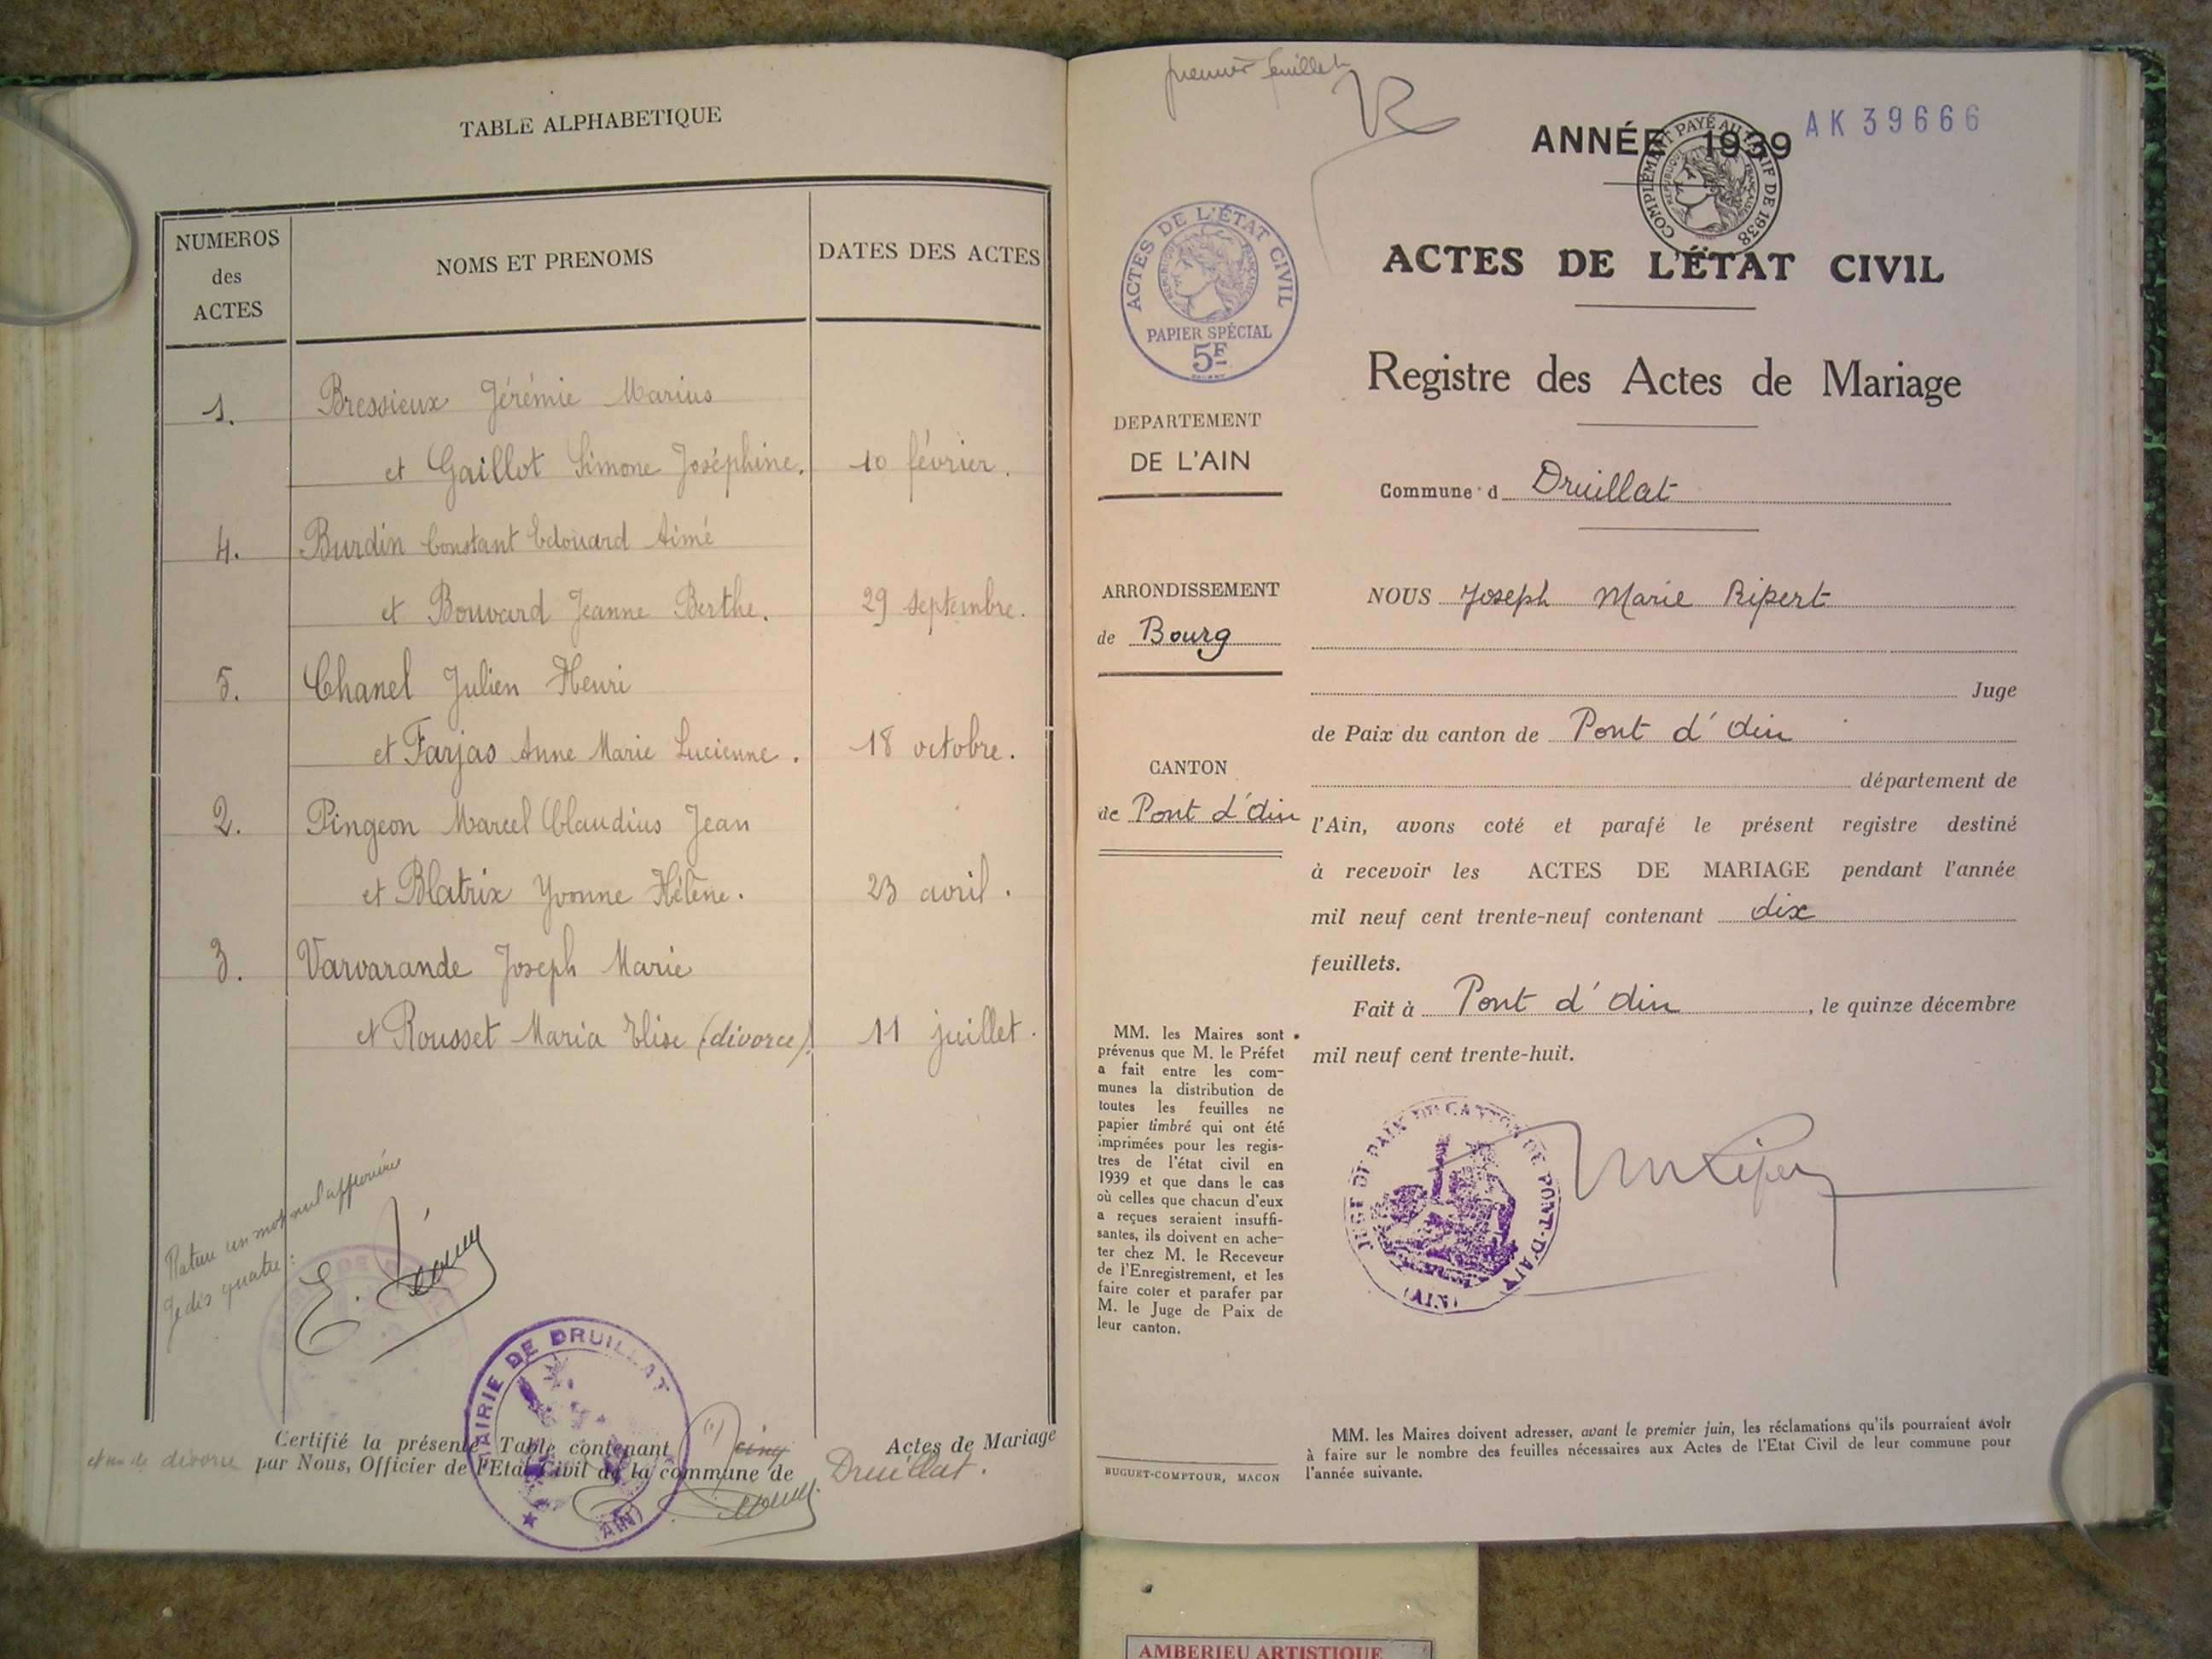 TABLE ALPHABETIQUE
NUMEROS
des
ACTES
NOMS ET PRENOMS
DATES DES ACTES
1. Bressieux Jérémie Marius
et Gaillot Simone Joséphine. 10 février.
4. Burdin Constant Edouard Aimé
et Bouvard Jeanne Berthe. 29 septembre.
5. Chanel Julien Henri
et Farjas Anne Marie Lucienne. 18 octobre.
2. Pingeon Marcel Claudius Jean
et Blatrix Yvonne Hélène. 23 avril.
3. Varvarande Joseph Marie
et Rousset Maria Elise (divorce). 11 juillet.
un mot nul
quatre
MAIRIE DE DRUILLAT
(AIN)
Certifié la présente Table contenant (1) cinq Actes de Mariage
et un de divorce par Nous, Officier de l'Etat Civil de la commune de Druillat.
premier feuillet
ANNÉE 1939
AK 39666
COMPLÉMENT PAYÉ AU TARIF DE 1938
RÉPUBLIQUE FRANÇAISE
ACTES DE L'ÉTAT CIVIL
RÉPUBLIQUE FRANÇAISE
PAPIER SPÉCIAL
5F
ACTES DE L'ÉTAT CIVIL
Registre des Actes de Mariage
DEPARTEMENT
DE L'AIN
Commune d Druillat
ARRONDISSEMENT
de Bourg
CANTON
de Pont d'Ain
NOUS Joseph Marie Ripert
Juge
de Paix du canton de Pont d'Ain
département de
l'Ain, avons coté et parafé le présent registre destiné
à recevoir les ACTES DE MARIAGE pendant l'année
mil neuf cent trente-neuf contenant dix
feuillets.
Fait à Pont d'Ain, le quinze décembre
mil neuf cent trente-huit.
MM. les Maires sont
prévenus que M. le Préfet
a fait entre les com-
munes la distribution de
toutes les feuilles ne
papier timbré qui ont été
imprimées pour les regis-
tres de l'état civil en
1939 et que dans le cas
où celles que chacun d'eux
a reçues seraient insuffi-
santes, ils doivent en ache-
ter chez M. le Receveur
de l'Enregistrement, et les
faire coter et parafer par
M. le Juge de Paix de
leur canton.
DE PAIX DU CANTON DE PONT-D'AIN
(AIN)
BUGUET-COMPTOUR, MACON
MM. les Maires doivent adresser, avant le premier juin, les réclamations qu'ils pourraient avoir
à faire sur le nombre des feuilles nécessaires aux Actes de l'Etat Civil de leur commune pour
l'année suivante.
AMBERIEU ARTISTIQUE